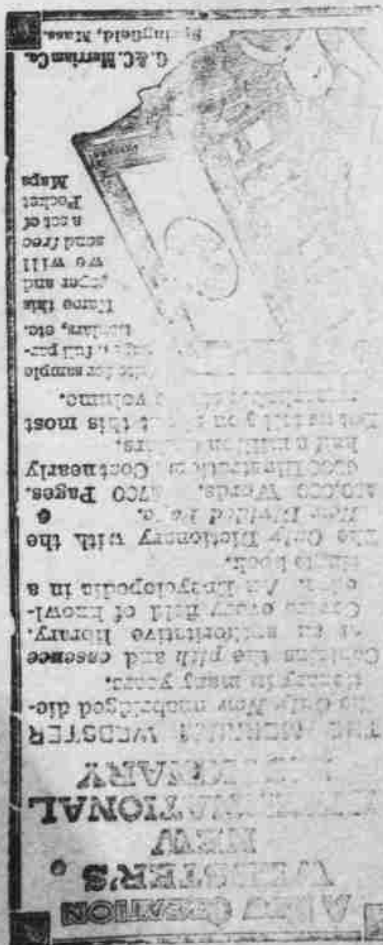 A NEW CREATION
WEBSTER'S
NEW
INTERNATIONAL
DICTIONARY
THE MERRIAM WEBSTER
The Only New unabridged dic-
tionary in many years.
Contains the pith and essence
of an authoritative library.
Covers every field of knowl-
edge. An Encyclopedia in a
single book.
The Only Dictionary with the
New Divided Page.
400,000 Words. 2700 Pages.
6000 Illustrations. Cost nearly
half a million dollars.
Let us tell you about this most
volume.
Write for sample
pages, full par-
ticulars, etc.
Name this
paper and
we will
send free
a set of
Pocket
Maps
G. & C. Merriam Co.
Springfield, Mass.